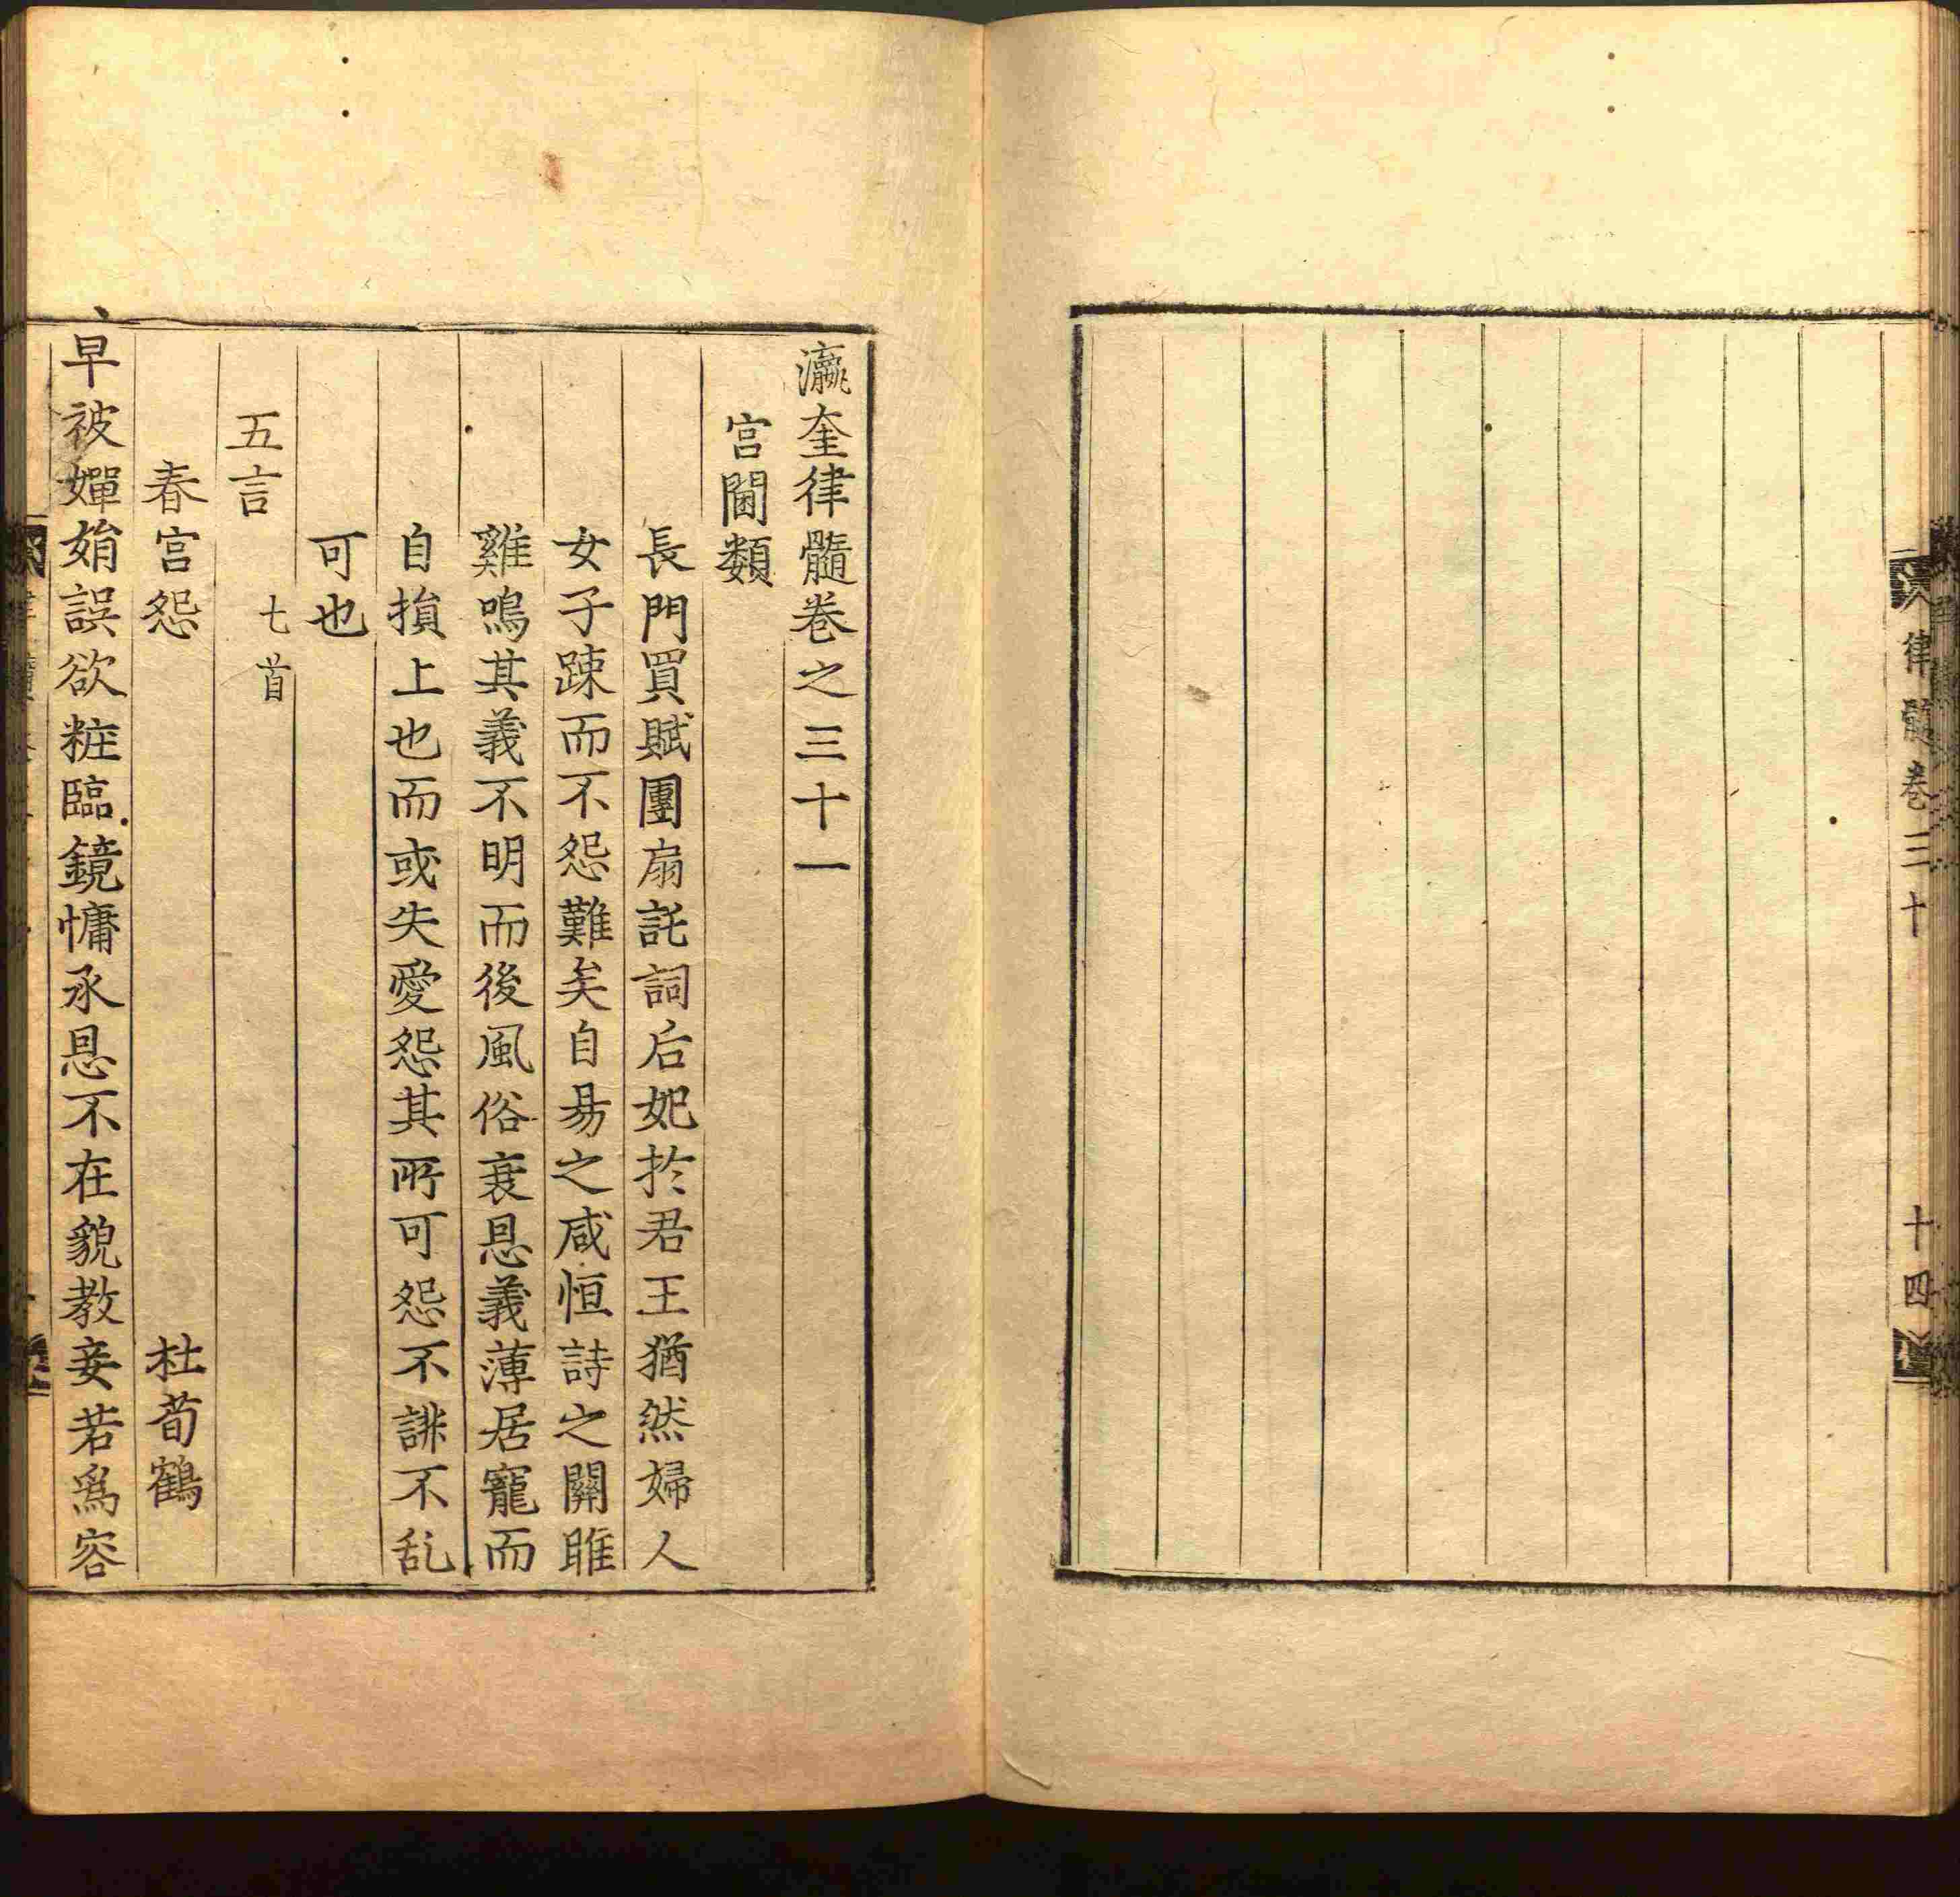 律髓卷三十
十四
瀛奎律髓卷之三十一
宫閫類
長門買賦團扇託詞后妃扵君王猶然婦人
女子踈而不怨難矣自昜之咸恒詩之關雎
雞鳴其義不明而後風俗衰恩義薄居寵而
自損上也而或失愛怨其所可怨不誹不乱
可也
五言 七首
春宫怨 杜荀鶴
早被嬋娟誤欲粧臨鏡慵承恩不在貌教妾若爲容